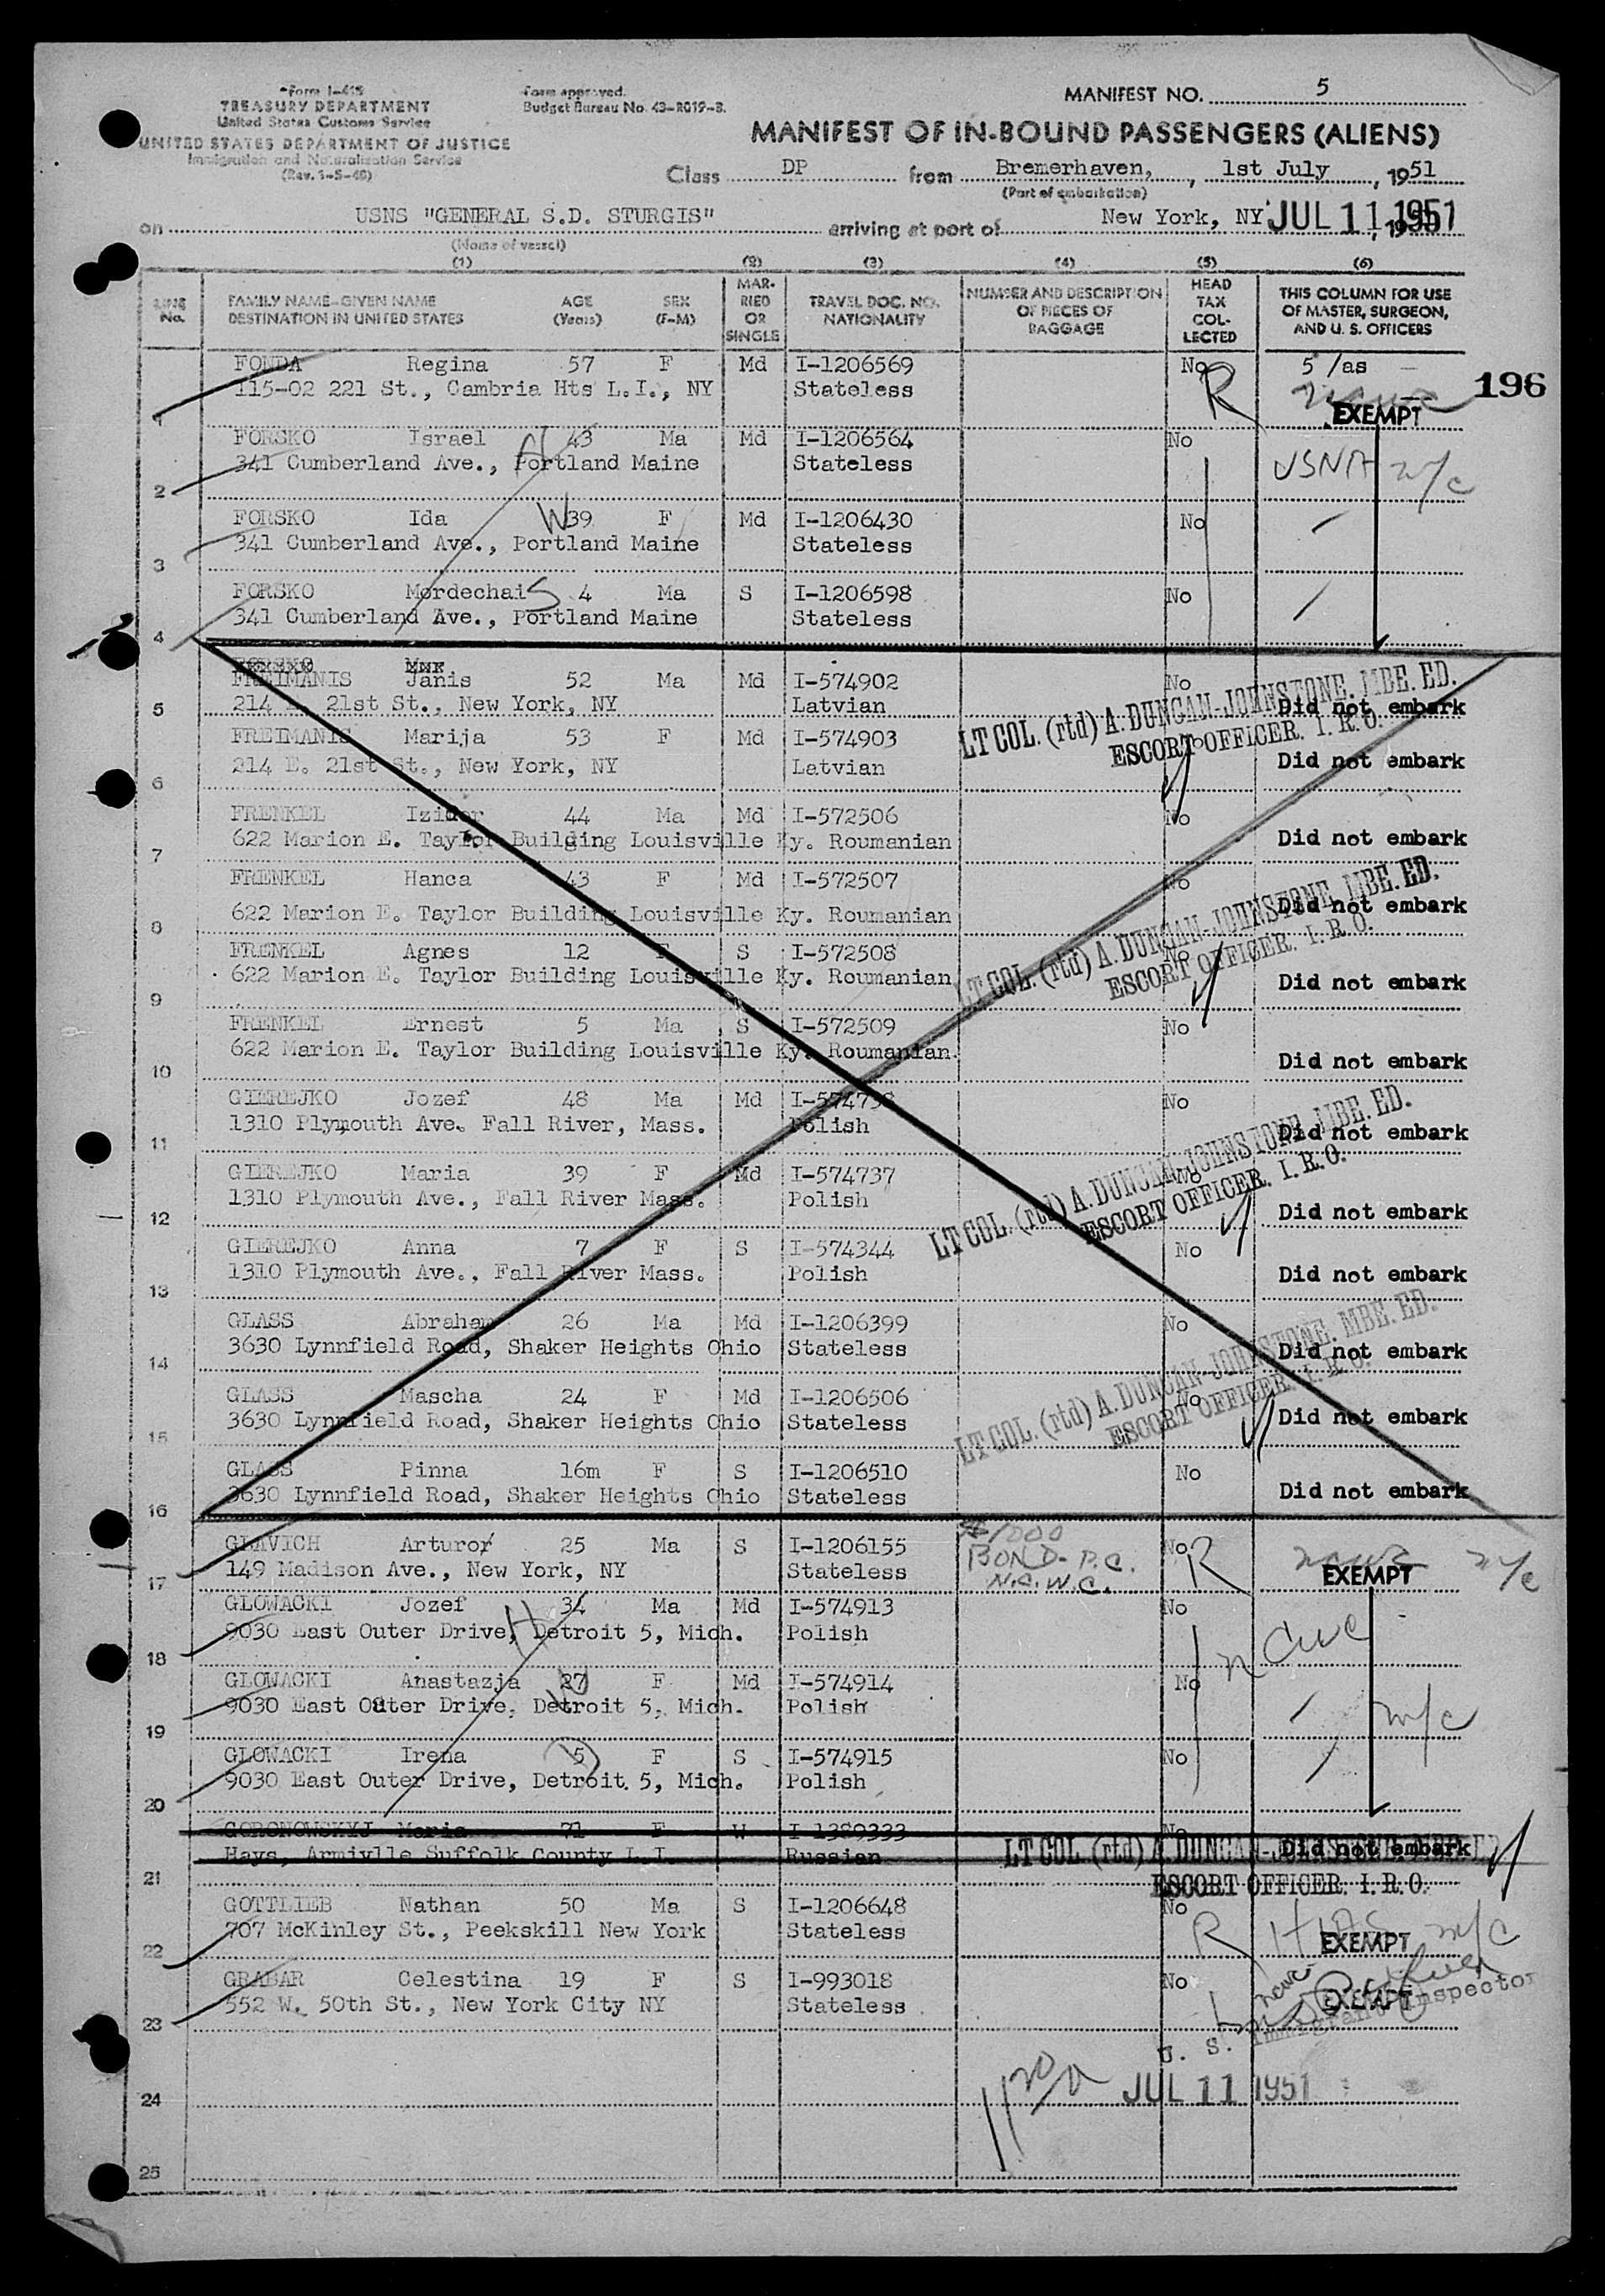 Form I-415
TREASURY DEPARTMENT
United States Customs Service
UNITED STATES DEPARTMENT OF JUSTICE
Immigration and Naturalization Service
(Rev. 1-5-48)
Form approved.
Budget Bureau No. 43-R019-3.
MANIFEST NO. 5
MANIFEST OF IN-BOUND PASSENGERS (ALIENS)
Class DP from Bremerhaven, , 1st July , 1951
(Port of embarkation)
on USNS "GENERAL S.D. STURGIS" arriving at port of New York, NY JUL 11 1951 , 19
(Name of vessel)
(1) (2) (3) (4) (5) (6)
LINE No.
FAMILY NAME-GIVEN NAME AGE SEX
DESTINATION IN UNITED STATES (Years) (F-M)
MARRIED OR SINGLE
TRAVEL DOC. NO. NATIONALITY
NUMBER AND DESCRIPTION OF PIECES OF BAGGAGE
HEAD TAX COLLECTED
THIS COLUMN FOR USE OF MASTER, SURGEON, AND U. S. OFFICERS
FONDA Regina 57 F Md I-1206569 No 5 /as
115-02 221 St., Cambria Hts L.I., NY Stateless R EXEMPT 196
1
FORSKO Israel 43 Ma Md I-1206564 No
341 Cumberland Ave., Portland Maine Stateless USNA
2
FORSKO Ida W 39 F Md I-1206430 No
341 Cumberland Ave., Portland Maine Stateless
3
FORSKO Mordechai S 4 Ma S I-1206598 No
341 Cumberland Ave., Portland Maine Stateless
4
FREIMANIS Janis 52 Ma Md I-574902 No
214 E. 21st St., New York, NY Latvian Did not embark
5
LT COL. (rtd) A. DUNCAN-JOHNSTONE. MBE. ED.
ESCORT OFFICER. I. R. O.
FREIMANIS Marija 53 F Md I-574903
214 E. 21st St., New York, NY Latvian Did not embark
6
FRENKEL Izidor 44 Ma Md I-572506 No
622 Marion E. Taylor Building Louisville Ky. Roumanian Did not embark
7
FRENKEL Hanca 43 F Md I-572507 No
622 Marion E. Taylor Building Louisville Ky. Roumanian Did not embark
8
LT COL. (rtd) A. DUNCAN-JOHNSTONE. MBE. ED.
ESCORT OFFICER. I. R. O.
FRENKEL Agnes 12 F S I-572508 No
622 Marion E. Taylor Building Louisville Ky. Roumanian Did not embark
9
FRENKEL Ernest 5 Ma S I-572509 No
622 Marion E. Taylor Building Louisville Ky. Roumanian. Did not embark
10
GIEREJKO Jozef 48 Ma Md No
1310 Plymouth Ave. Fall River, Mass. Polish Did not embark
11
LT COL. (rtd) A. DUNCAN-JOHNSTONE. MBE. ED.
ESCORT OFFICER. I. R. O.
GIEREJKO Maria 39 F Md I-574737 No
1310 Plymouth Ave., Fall River Mass. Polish Did not embark
12
GIEREJKO Anna 7 F S I-574344 No
1310 Plymouth Ave., Fall River Mass. Polish Did not embark
13
GLASS Abraham 26 Ma Md I-1206399 No
3630 Lynnfield Road, Shaker Heights Ohio Stateless Did not embark
14
LT COL. (rtd) A. DUNCAN-JOHNSTONE. MBE. ED.
ESCORT OFFICER. I. R. O.
GLASS Mascha 24 F Md I-1206506 No
3630 Lynnfield Road, Shaker Heights Ohio Stateless Did not embark
15
GLASS Pinna 16m F S I-1206510 No
3630 Lynnfield Road, Shaker Heights Ohio Stateless Did not embark
16
GLAVICH Arturo 25 Ma S I-1206155 $1000 No
149 Madison Ave., New York, NY Stateless BOND- P.C. R EXEMPT
N.C.W.C.
17
GLOWACKI Jozef H 34 Ma Md I-574913 No
9030 East Outer Drive, Detroit 5, Mich. Polish
18
GLOWACKI Anastazja 27 F Md I-574914 No
9030 East Outer Drive, Detroit 5, Mich. Polish
19
GLOWACKI Irena 5 F S I-574915 No
9030 East Outer Drive, Detroit 5, Mich. Polish
20
GORONOWSKYJ Maria 71 F W I-1389333 No
Hays, Armiylle Suffolk County L.I. Russian Did not embark
LT COL (rtd) A. DUNCAN-
ESCORT OFFICER. I. R. O.
21
GOTTLIEB Nathan 50 Ma S I-1206648 No
707 McKinley St., Peekskill New York Stateless R HIAS EXEMPT
22
GRABAR Celestina 19 F S I-993018 No
552 W. 50th St., New York City NY Stateless EXEMPT
U. S. Immigrant Inspector
23
JUL 11 1951
24
25